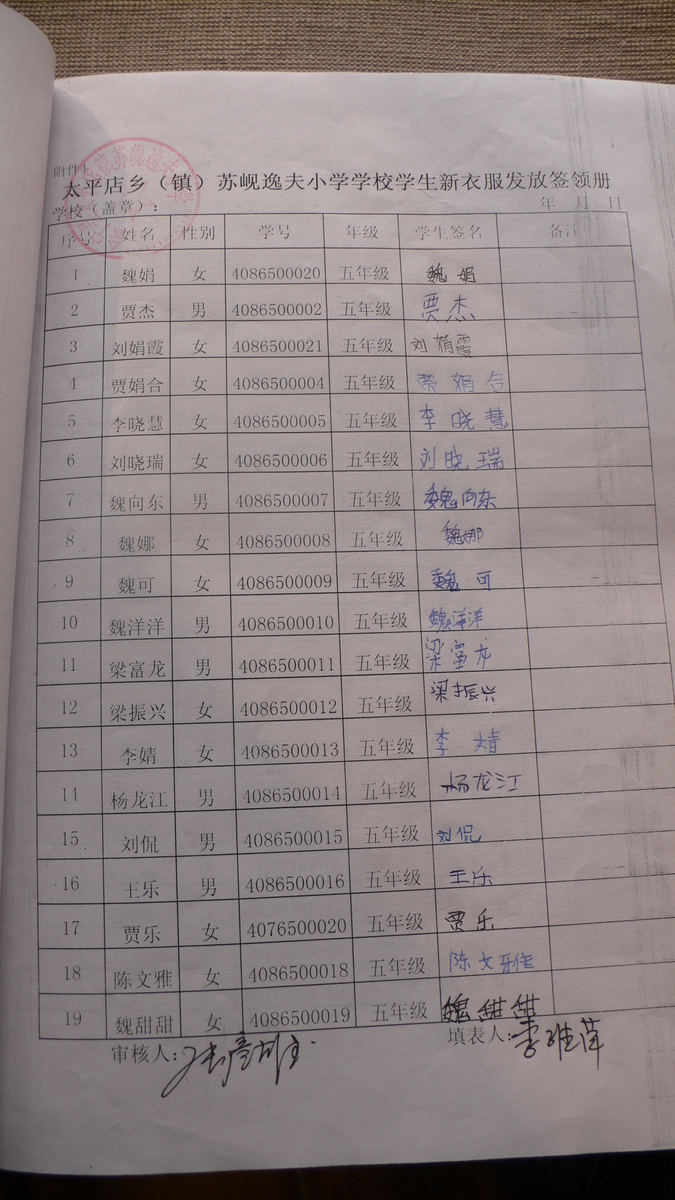 附件1
太平店乡（镇）苏岘逸夫小学学校学生新衣服发放签领册
学校（盖章）： 年 月 日
序号 姓名 性别 学号 年级 学生签名 备注
1 魏娟 女 4086500020 五年级 魏娟
2 贾杰 男 4086500002 五年级 贾杰
3 刘娟霞 女 4086500021 五年级 刘娟霞
4 贾娟合 女 4086500004 五年级 贾娟合
5 李晓慧 女 4086500005 五年级 李晓慧
6 刘晓瑞 女 4086500006 五年级 刘晓瑞
7 魏向东 男 4086500007 五年级 魏向东
8 魏娜 女 4086500008 五年级 魏娜
9 魏可 女 4086500009 五年级 魏可
10 魏洋洋 男 4086500010 五年级 魏洋洋
11 梁富龙 男 4086500011 五年级 梁富龙
12 梁振兴 女 4086500012 五年级 梁振兴
13 李婧 女 4086500013 五年级 李婧
14 杨龙江 男 4086500014 五年级 杨龙江
15 刘侃 男 4086500015 五年级 刘侃
16 王乐 男 4086500016 五年级 王乐
17 贾乐 女 4076500020 五年级 贾乐
18 陈文雅 女 4086500018 五年级 陈文雅
19 魏甜甜 女 4086500019 五年级 魏甜甜
审核人： 填表人：李维萍